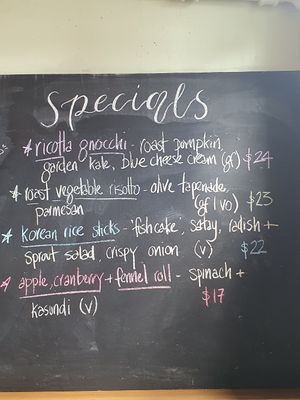 Specials
* ricotta gnocchi - roast pumpkin,
garden kale, blue cheese cream (gf) $24
* roast vegetable risotto - olive tapenade,
parmesan (gf|vo) $23
* korean rice sticks - fishcake, satay, radish +
sprout salad, crispy onion (v) $22
* apple, cranberry + fennel roll - spinach +
kasundi (v) $17